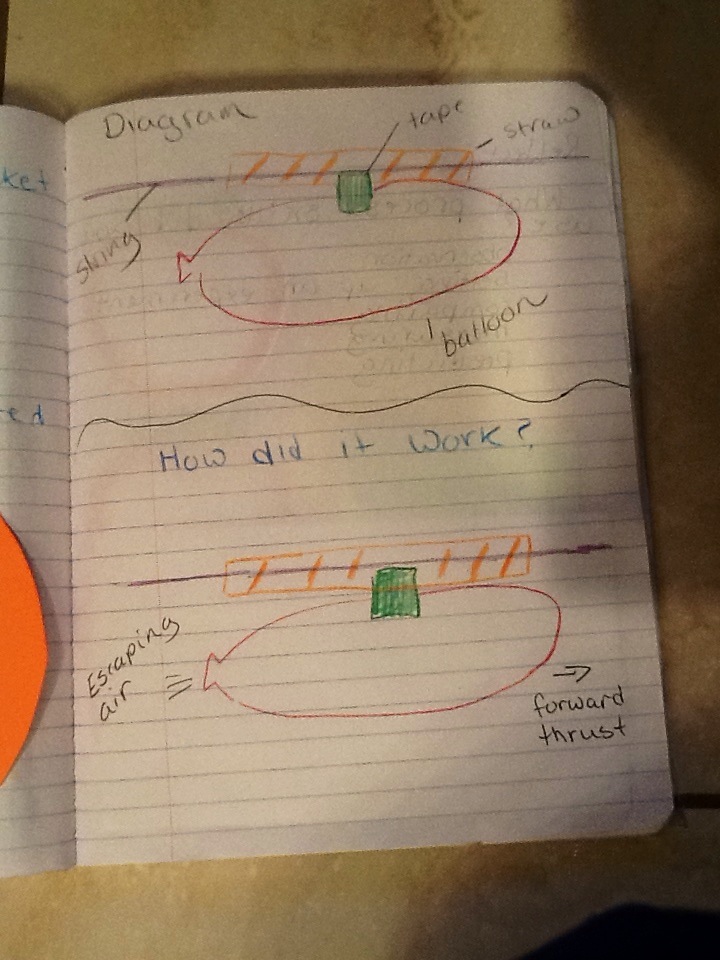 ket
ed
Diagram
tape
straw
string
balloon
How did it work?
Escaping
air
forward
thrust